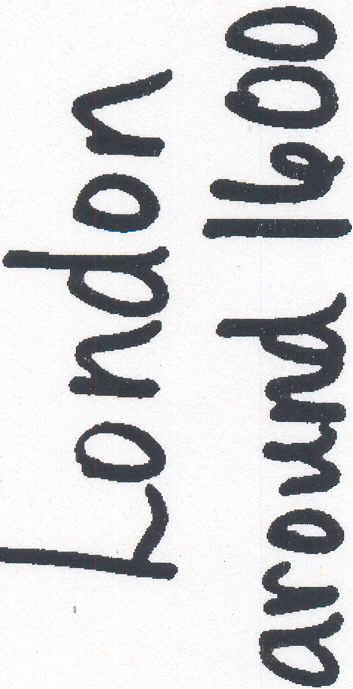 London
around 1600